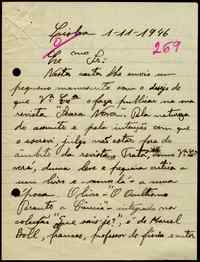 Lisboa 1-11-1946
269
Ex.mo Sr.:
Nesta carta lhe envio um
pequeno manuscrito com o desejo de
que V.ª Ex.ª o faça publicar na sua
revista Seara Nova. Pela natureza
do assunto e pela intenção com que
o escrevi, julgo não estar fora do
âmbito da revista. Trata, como V.
verá, duma leve e pequena crítica a
um livro e a uma
O livro "O
" integrado na
colecção "Que sais-je?", é de Marcel
Boll, francês, professor de física e autor